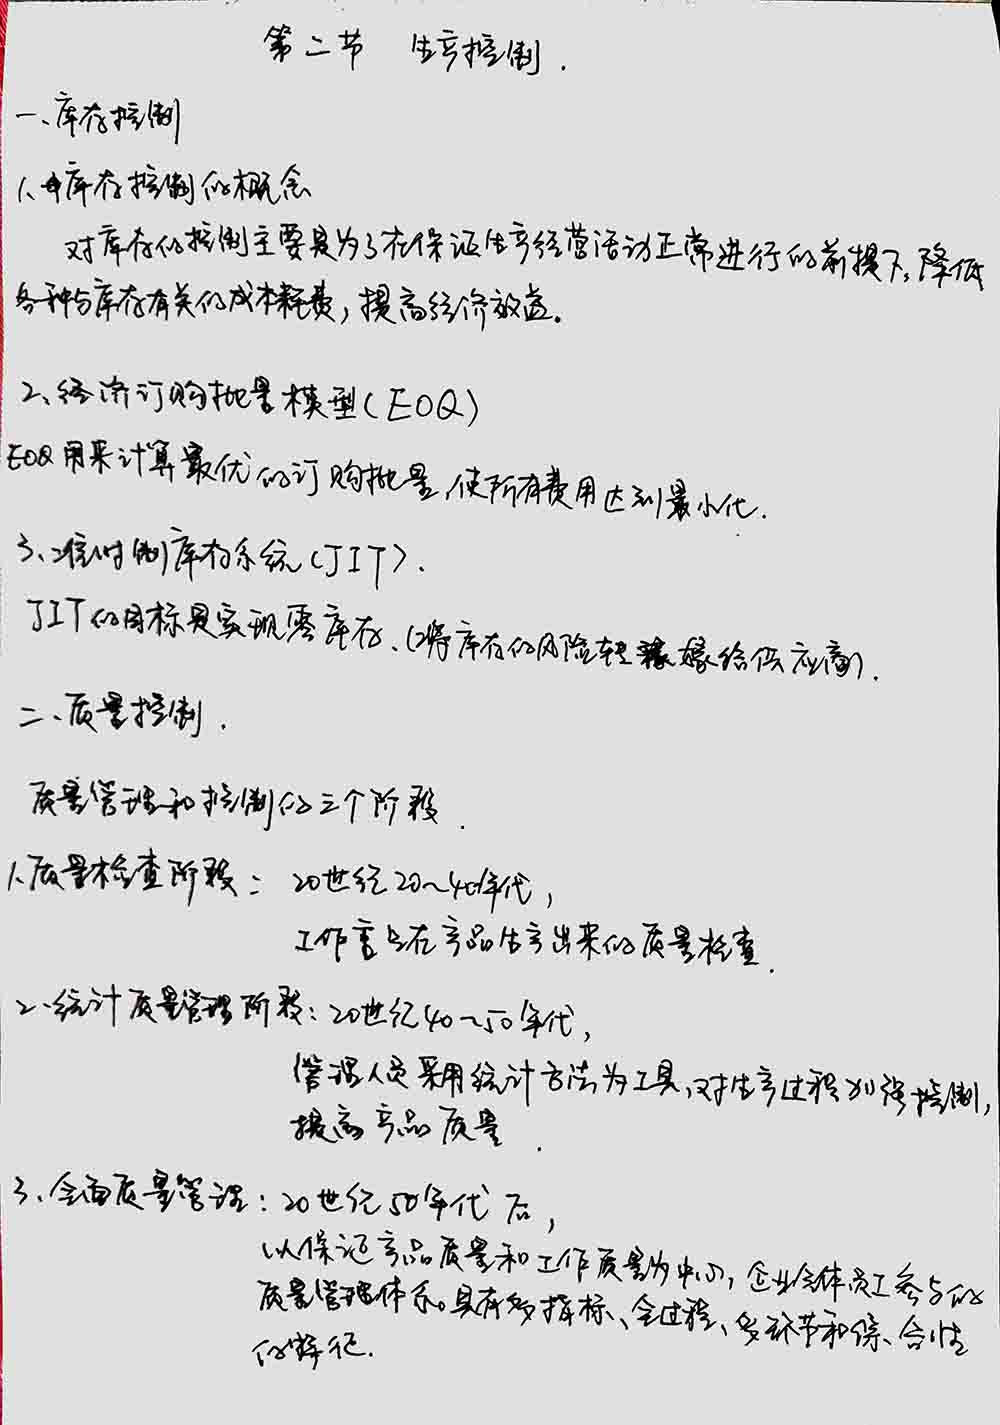 第二节 生产控制.
一、库存控制
1、库存控制的概念
对库存的控制主要是为了在保证生产经营活动正常进行的前提下,降低
各种与库存有关的成本耗费,提高经济效益。
2、经济订购批量模型(EOQ)
EOQ用来计算最优的订购批量,使所有费用达到最小化.
3、准时制库存系统(JIT).
JIT的目标是实现零库存、(将库存的风险转嫁给供应商).
二、质量控制.
质量管理和控制的三个阶段.
1、质量检查阶段: 20世纪20~40年代,
工作重点在产品生产出来的质量检查.
2、统计质量管理阶段: 20世纪40~50年代,
管理人员采用统计方法为工具、对生产过程加强控制,
提高产品质量.
3、全面质量管理: 20世纪50年代后,
以保证产品质量和工作质量为中心,企业全体员工参与的
质量管理体系。具有多指标、全过程、多环节和综合性
的特征.